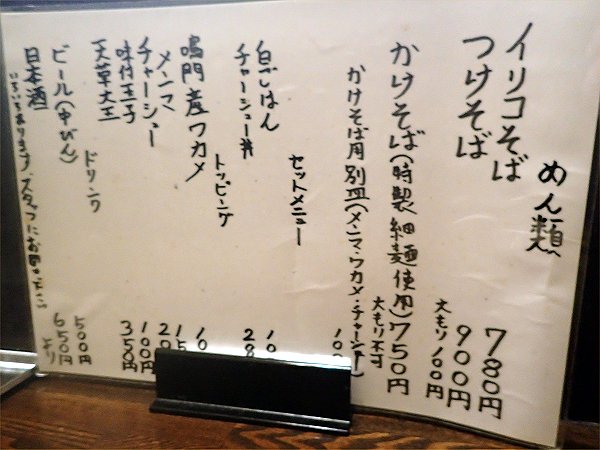 めん類
イリコそば 780円
つけそば 900円
大もり100円
かけそば(特製細麺使用)750円
大もり不可
かけそば用別皿(メンマ・ワカメ・チャーシュー)
セットメニュー
白ごはん
チャーシュー丼
トッピング
鳴門産ワカメ
メンマ
チャーシュー
味付玉子 100円
天草大王 350円
ドリンク
ビール(中びん) 500円
日本酒 650円より
いろいろあります。スタッフにお聞き下さい